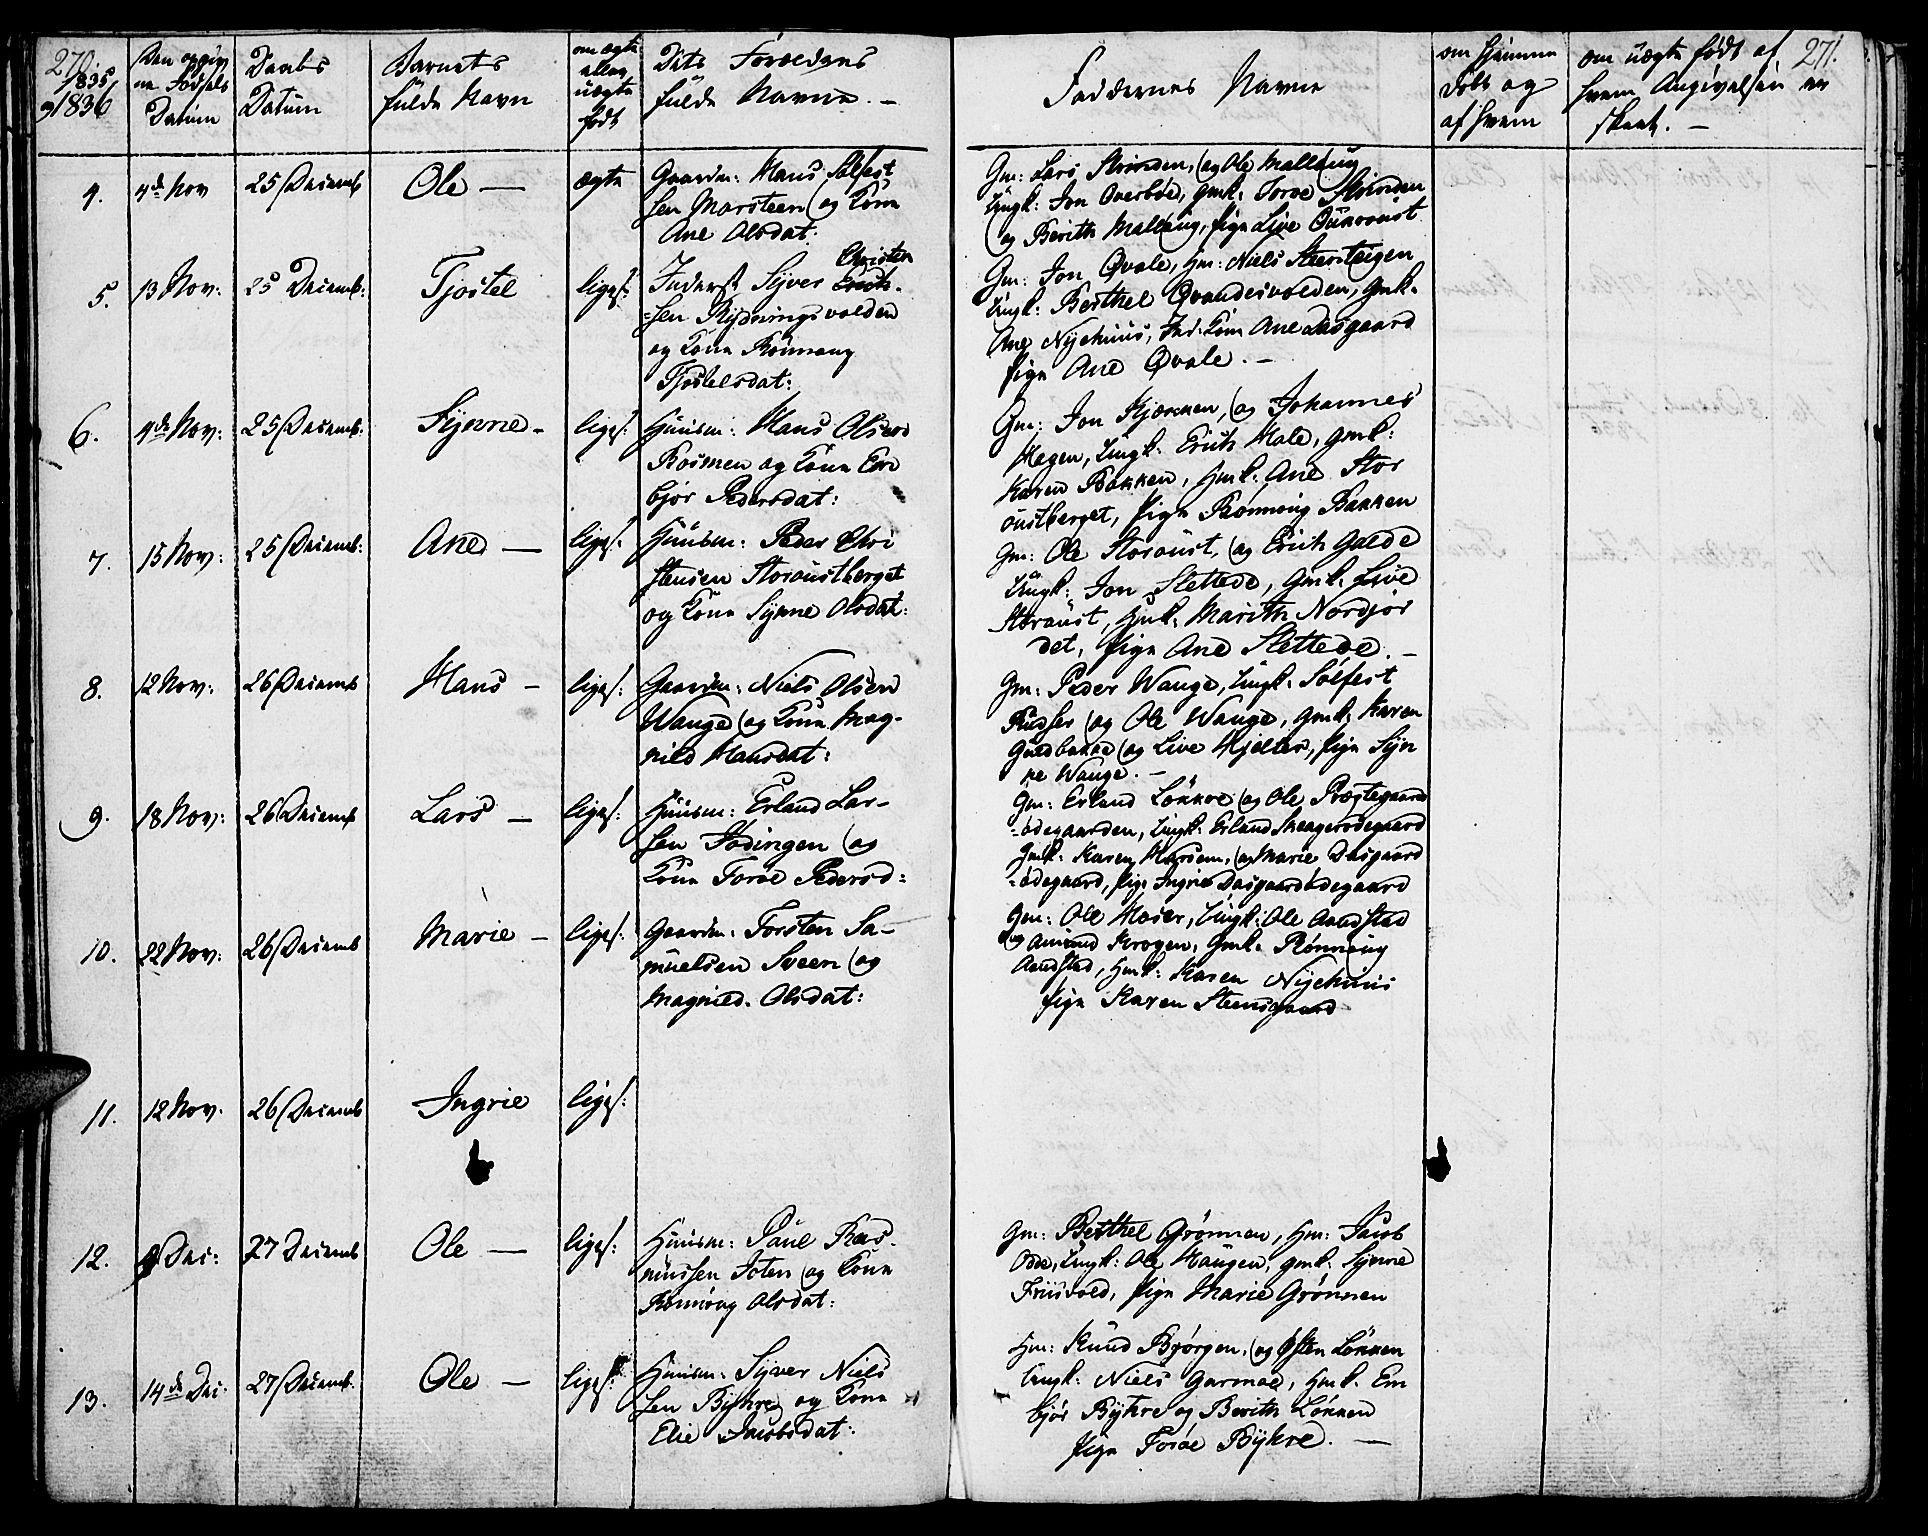 270.
1835
og 1836
Den opgiv
ne Fødsels
Datum
Daabs
Datum
Barnets
fulde Navn
om ægte
eller
uægte
født
Dets Forældres
fulde Navne. —
Faddernes Navne
om hjemme
døbt og
af hvem
om uægte født af
hvem Angivelsen er
skeet. —
271.
4.
4de Nov
25 Decemb
Ole —
ægte
Gaardm: Hans Sølfest
sen Marsteen og Kone
Ane Olsdat:
Gm: Lars Strinden, og Ole Malløug
Ungk: Jon Øverbøe, Gmk. Toroe Strinden
og Berith Malløug, Pige Live Sunroust
5.
13 Nov:
25 Decemb:
Tjostel
liges:
Inderst Syver Christen
sen Rydningsvolden
og Kone Rønnoug
Tjostelsdat:
Gm: Jon Qvale, Hm: Niels Steensteigen
Ungk: Berthel Qvandesvolden, Gmk.
Ane Nyehuus, Ind. Kone Ane Dasgaard
Pige Ane Qvale. —
6.
4de Nov:
25 Decemb:
Synne —
liges:
Huusm: Hans Olsen
Rosmen og Kone Em
bjør Pedersdat:
Gm: Jon Kjørmen, og Johannes
Hagen, Ungk: Erich Hole, Gmk:
Karen Bakken, Hmk. Ane Stor
oustberget, Pige Rønnoug Bakken
7.
15 Nov:
25 Decemb:
Ane —
liges:
Huusm: Peder Chri
stensen Storoustberget
og Kone Synne Olsdat:
Gm: Ole Storoust, og Erich Galde
Ungk: Jon Slettede, Gmk. Live
Storoust, Hmk. Marith Nordjor
det, Pige Ane Slettede. —
8.
12 Nov:
26 Decemb
Hans —
liges:
Gaardm: Niels Olsen
Wange og Kone Mag-
nild Hansdat:
Gm: Peder Wange, Ungk: Sølfest
og Ole Wange, Gmk. Karen
og Live Hjelter, Pige Syn
ne Wange. —
9.
18 Nov:
26 Decemb
Lars —
liges:
Huusm: Erland Lar-
sen Stødingen og
Kone Toroe Pedersd:
Gm: Erland Løkkre og Ole Prestegaards
-ødegaarden, Ungk: Erland Skeagerødegaard
Gmk: Karen Harsem, og Marie Dasgaard
-ødegaard, Pige Ingrie Dasgaardødegaard
10.
22 Nov:
26 Decemb
Marie —
liges:
Gaardm: Torsten Sa-
muelsen Sveen og
Magnild Olsdat:
Gm: Ole Moser, Ungk: Ole Aandstad
og Amund Krogen, Gmk. Rønnoug
Aandstad, Hmk: Karen Nyehuus
Pige Karen Steensgaard
11.
12 Nov.
26 Decemb
Ingrie
liges:
12.
Dec:
27 Decemb
Ole —
liges:
Huusm: Paul Ras-
mussen Toten og Kone
Rønnoug Olsdat:
Gm: Berthel Grønnen, Hm: Jacob
Odde, Ungk: Ole Haugen, Gmk. Synne
Friisvold, Pige Marie Grønnen
13.
14de Dec:
27 Decemb.
Ole —
liges:
Huusm: Syver Niels
sen Bykre og Kone
Elie Jacobsdat:
Hm: Knud Bjørgen, og Østen Løkken
Ungk: Niels Garmoe, Hmk. Em
bjør Bykre og Berith Løkken
Pige Toroe Bykre. —